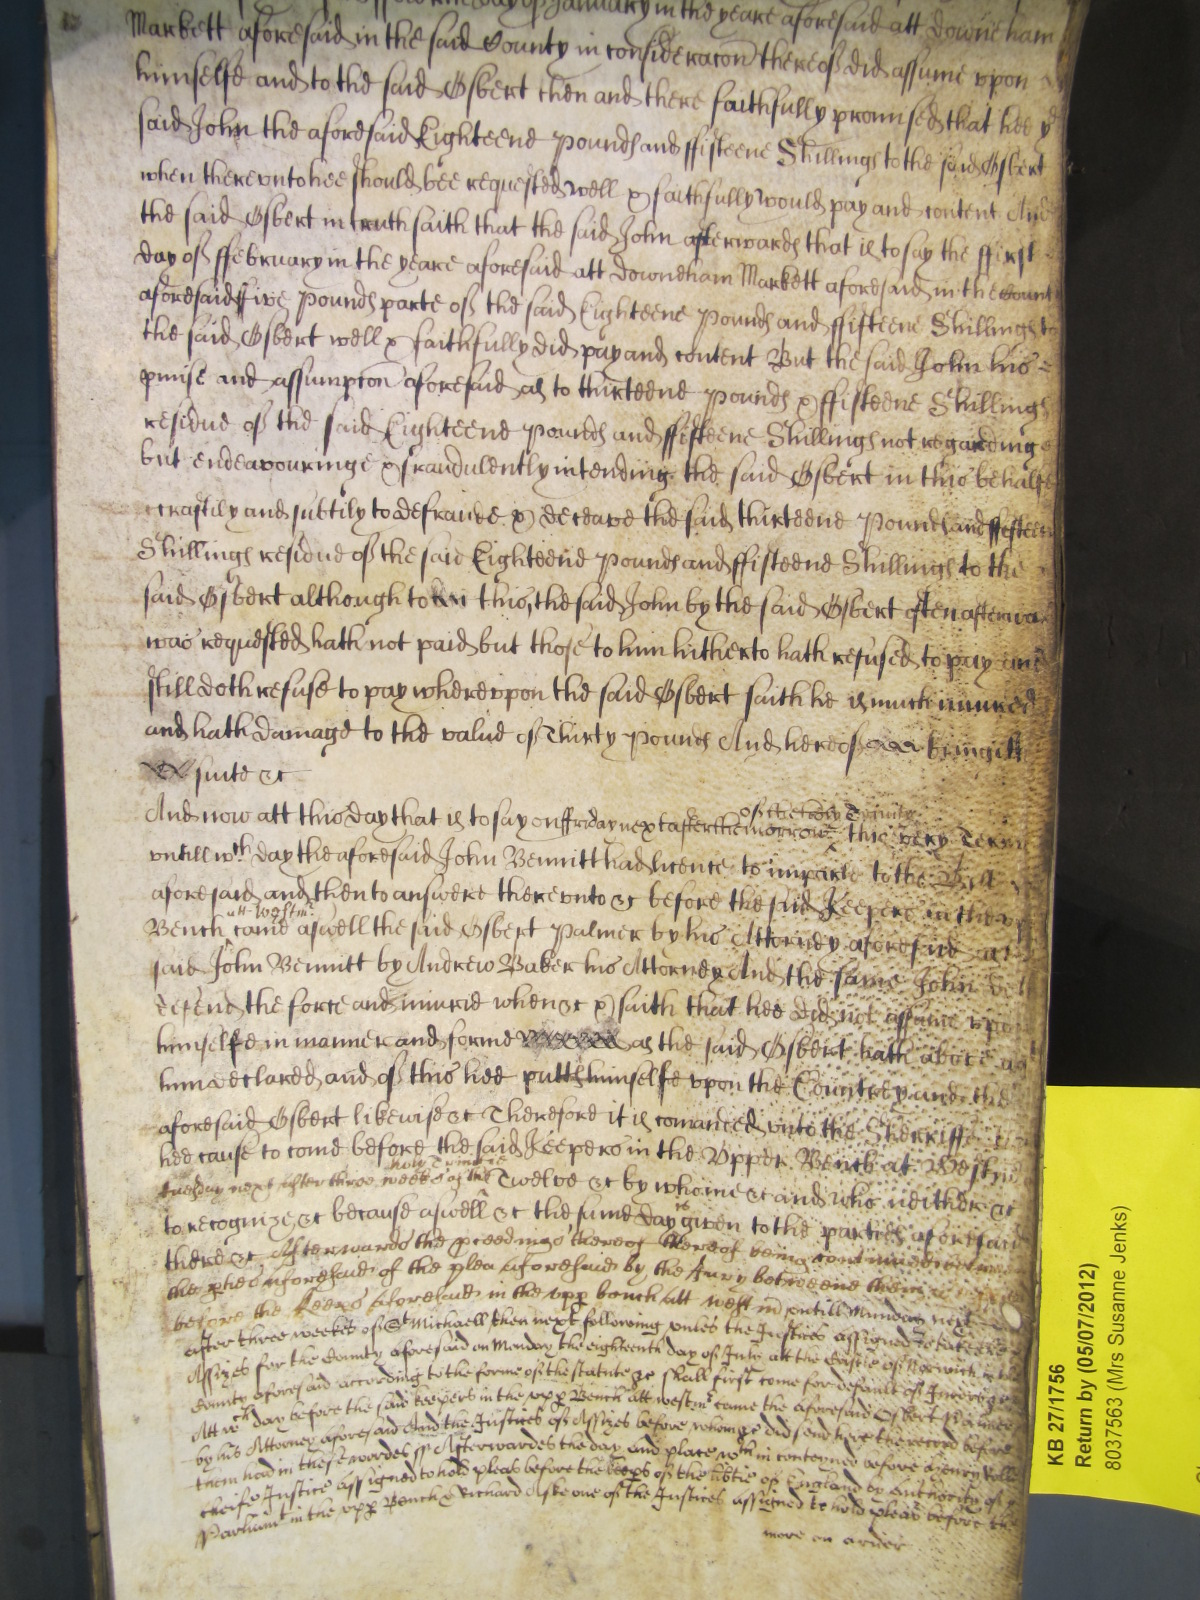 day of January in the yeare aforesaid att Downeham
Markett aforesaid in the said County in consideracon thereof did assume vpon
himselfe and to the said Osbert then and there faithfully promised that hee ye
said John the aforesaid Eighteene Pounds and ffifteene Shillings to the said Osbert
when therevnto hee should bee requested well & faithfully would pay and content And
the said Osbert in truth saith that the said John afterwards that is to say the ffirst
day of ffebruary in the yeare aforesaid att Downeham Markett aforesaid in the Count
aforesaid ffive Pounds parte of the said Eighteene Pounds and ffifteene Shillings to
the said Osbert well & faithfully did pay and content But the said John his
pmise and assumpcon aforesaid as to thirteene Pounds & ffifteene Shillings
residue of the said Eighteene Pounds and ffifteene Shillings not regardinge
but endeavouringe & fraudulently intending the said Osbert in this behalfe
craftily and subtily to defraude & deceave the said thirteene Pounds and ffifteen
Shillings residue of the said Eighteene Pounds and ffifteene Shillings to the
said Osbert although to this, the said John by the said Osbert often afterwar
was requested hath not paid but those to him hitherto hath refused to pay and
still doth refuse to pay wherevpon the said Osbert saith he is much iniured
and hath damage to the value of Thirty Pounds And hereof bringith
suite &c
And now att this day that is to say on ffriday next after the morrow of the holy Trinity this very Terme
vntill wch day the aforesaid John Bennitt had licence to imparle to the Bill
aforesaid and then to answere therevnto &c before the said Keepers in the vp
Bench att Westmr came aswell the said Osbert Palmer by his Attorney aforesaid as
said John Bennitt by Andrew Baker his Attorney And the same John
defend the force and iniurie when &c & saith that hee did not assume vpon
himselfe in manner and forme as the said Osbert hath above ag
him declared and of this hee putth himselfe vpon the Countrey and the
aforesaid Osbert likewise &c Therefore it is comanded vnto the Sherriffe
hee cause to come before the said Keepers in the Vpper Bench at Westm
tuesday next after three weekes of the holy Trinitie Twelve &c by whome &c and who neither &c
to recognize &c because aswell &c the same day is given to the parties aforesaid
there &c Afterwards the pceedings thereof thereof being continued betweene
the pties aforesaid of the plea aforesaid by the Jury betweene them
before the Keeps aforesaid in the vpp bench att westm vntill Munday next
after three weekes of St Michaell then next following vnles the Justices assigned to take the
Assizes for the County aforesaid on Monday the eighteenth day of July att the Castle of Norwich in the
County aforesaid according to the forme of the statute &c shall first come for default of Jurors &c
Att wch day before the said keepers in the vpp Bench att westmr came the aforesaid Osbert Palmer
by his Attorney aforesaid And the Justices of Assizes before whome &c did send here the record before
them had in these wordes ss Afterwardes the day and place wthin contayned before Henry Rolle
cheife Justice assigned to hold pleas before the keeps of the libtie of England by authority of
Parliamt in the vpp Bench & Richard Aske one of the Justices assigned to hold pleas before the
more on
KB 27/1756
Return by (05/07/2012)
8037563 (Mrs Susanne Jenks)